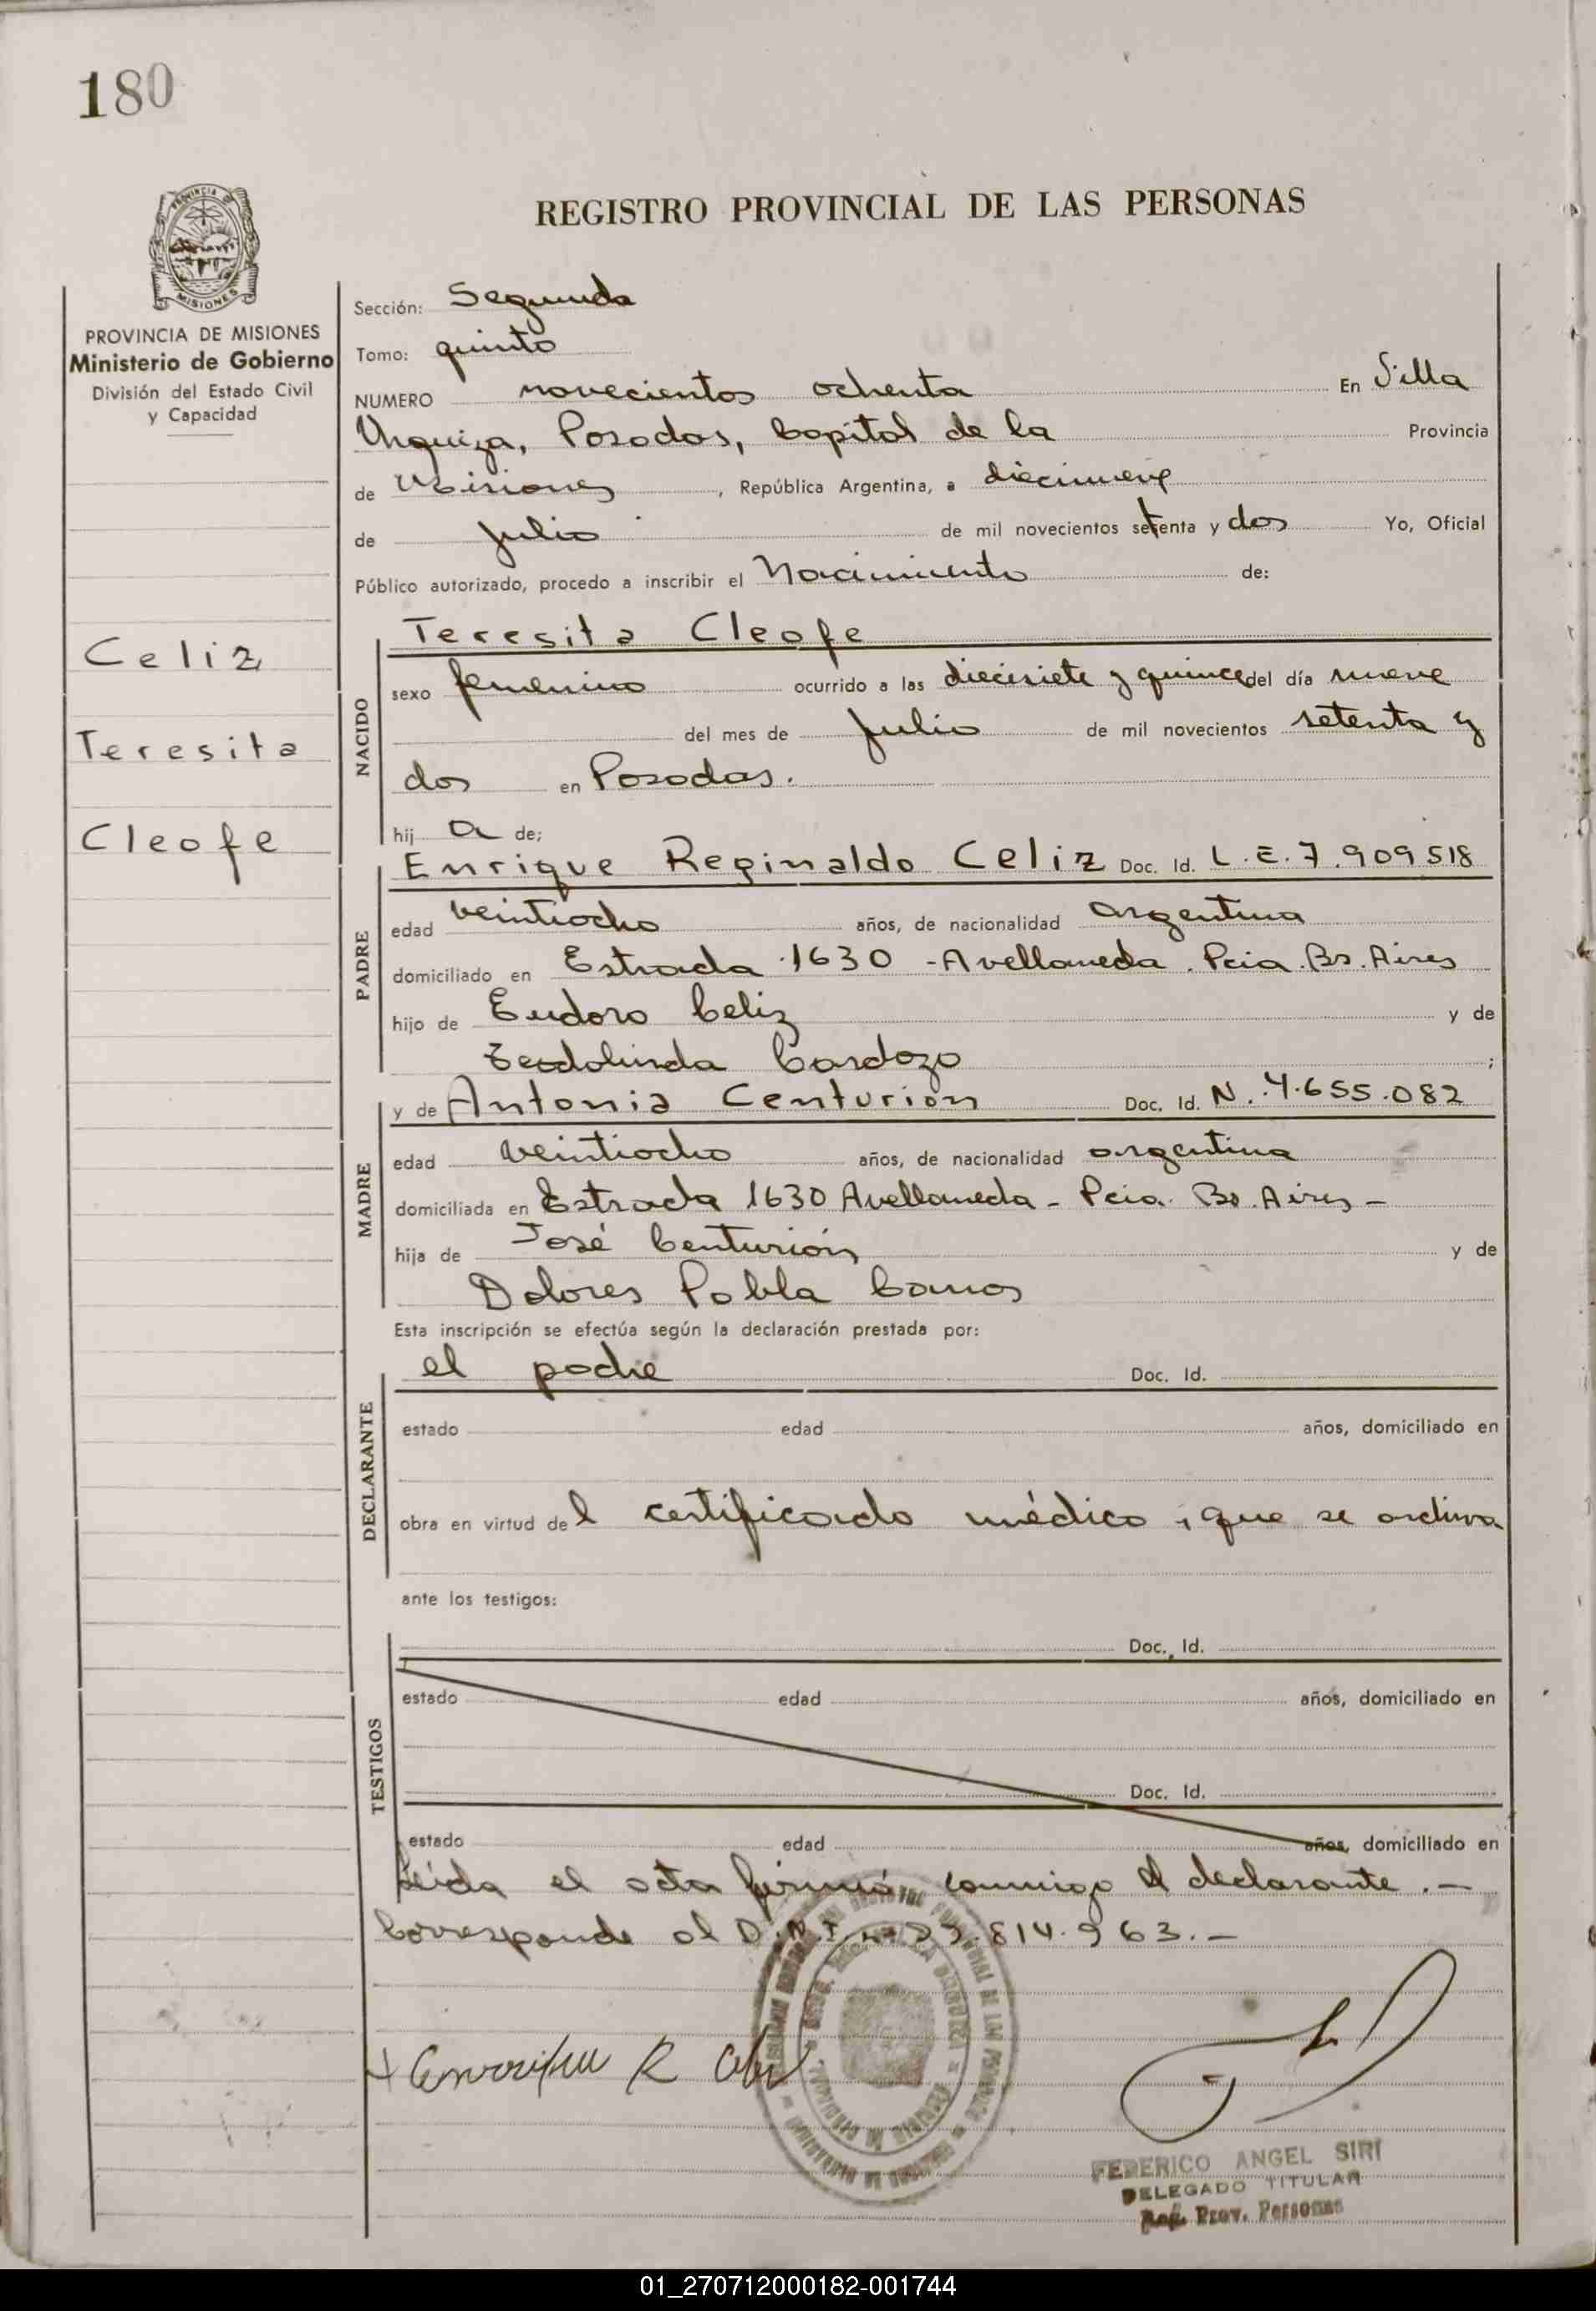 180
PROVINCIA
MISIONES
REGISTRO PROVINCIAL DE LAS PERSONAS
PROVINCIA DE MISIONES
Ministerio de Gobierno
División del Estado Civil
y Capacidad
Celiz
Teresita
Cleofe
Sección: Segunda
Tomo: quinto
NUMERO novecientos ochenta En Villa
Urquiza, Posadas, Capital de la Provincia
de Misiones, República Argentina, a diecinueve
de Julio de mil novecientos setenta y dos Yo, Oficial
Público autorizado, procedo a inscribir el Nacimiento de:
NACIDO
Teresita Cleofe
sexo femenino ocurrido a las diecisiete y quince del día nueve
del mes de Julio de mil novecientos setenta y
dos en Posadas.
hij a de;
PADRE
Enrique Reginaldo Celiz Doc. Id. L.E. 7.909518
edad veintiocho años, de nacionalidad argentina
domiciliado en Estrada 1630 - Avellaneda. Pcia. Bs. Aires
hijo de Eudoro Celiz y de
Teodolinda Cardozo ;
MADRE
y de Antonia Centurión Doc. Id. N. 4.655.082
edad veintiocho años, de nacionalidad argentina
domiciliada en Estrada 1630 Avellaneda - Pcia. Bs. Aires -
hija de José Centurión y de
Dolores Pabla
Esta inscripción se efectúa según la declaración prestada por:
DECLARANTE
el padre Doc. Id.
estado edad años, domiciliado en
obra en virtud del certificado médico, que se archiva
ante los testigos:
TESTIGOS
Doc. Id.
estado edad años, domiciliado en
Doc. Id.
estado edad años, domiciliado en
Leída el acta firmó conmigo el declarante. -
Corresponde al D.N.I. 814.963. -
FEDERICO ANGEL SIRI
DELEGADO TITULAR
Reg. Prov. Personas
01_270712000182-001744